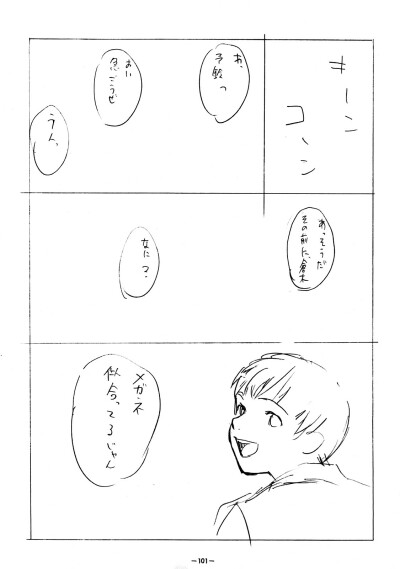 キーン
コーン
お、
予鈴っ
おい
急ごうぜ
うん、
あっそうだ
その前に、倉木
なに？
メガネ
似合ってるじゃん
～101～